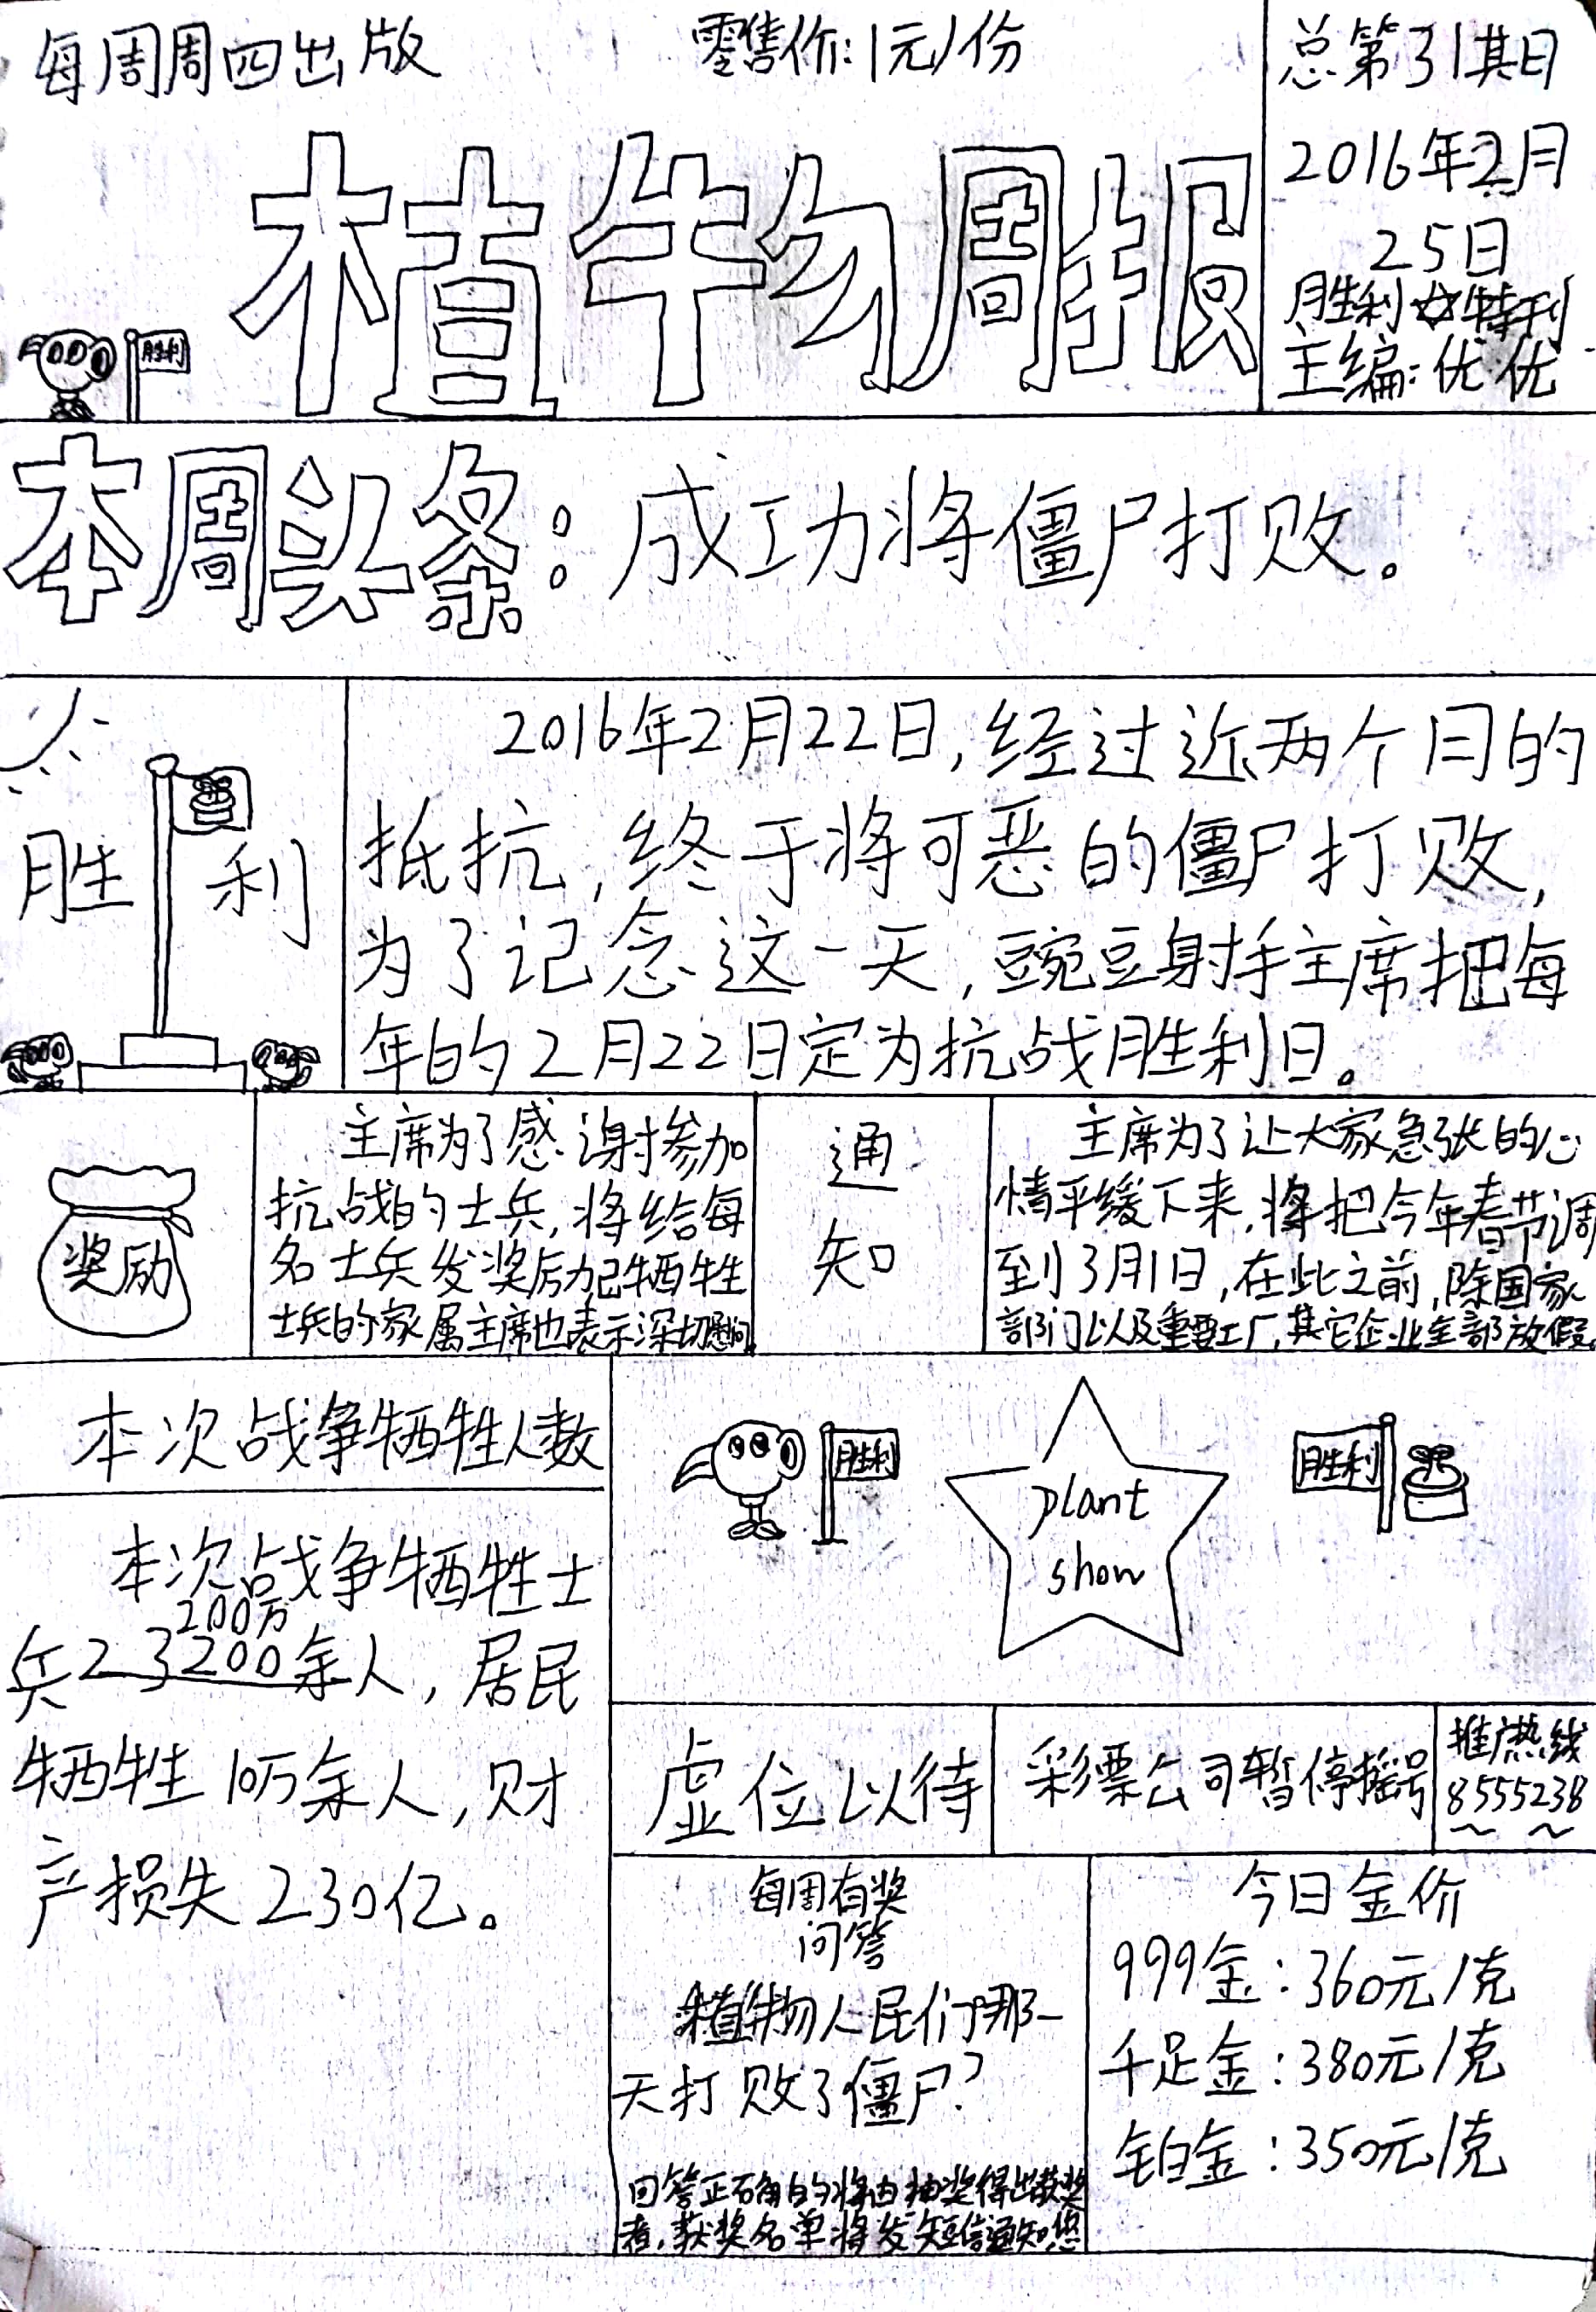 每周周四出版
零售价:1元/份
总第31期
2016年2月
25日
胜利☆特刊
主编:优优
植物周报
胜利
本周头条:成功将僵尸打败。
胜
利
2016年2月22日,经过近两个月的
抵抗,终于将可恶的僵尸打败,
为了记念这一天,豌豆射手主席把每
年的2月22日定为抗战胜利日。
奖励
主席为了感谢参加
抗战的士兵,将给每
名士兵发奖励记牺牲
士兵的家属主席也表示深切慰问
通
知
主席为了让大家急张的心
情平缓下来,将把今年春节调
到3月1日,在此之前,除国家
部门以及重要工厂,其它企业全部放假。
本次战争牺牲人数
本次战争牺牲士
200万
兵23200余人,居民
牺牲10万余人,财
产损失230亿。
胜利
plant
show
胜利
虚位以待
彩票公司暂停摇号
推广热线
8555238
每周有奖
问答
植物人民们哪一
天打败了僵尸?
回答正确的将由抽奖得出获奖
者,获奖名单将发短信通知您
今日金价
999金:360元/克
千足金:380元/克
铂金:350元/克